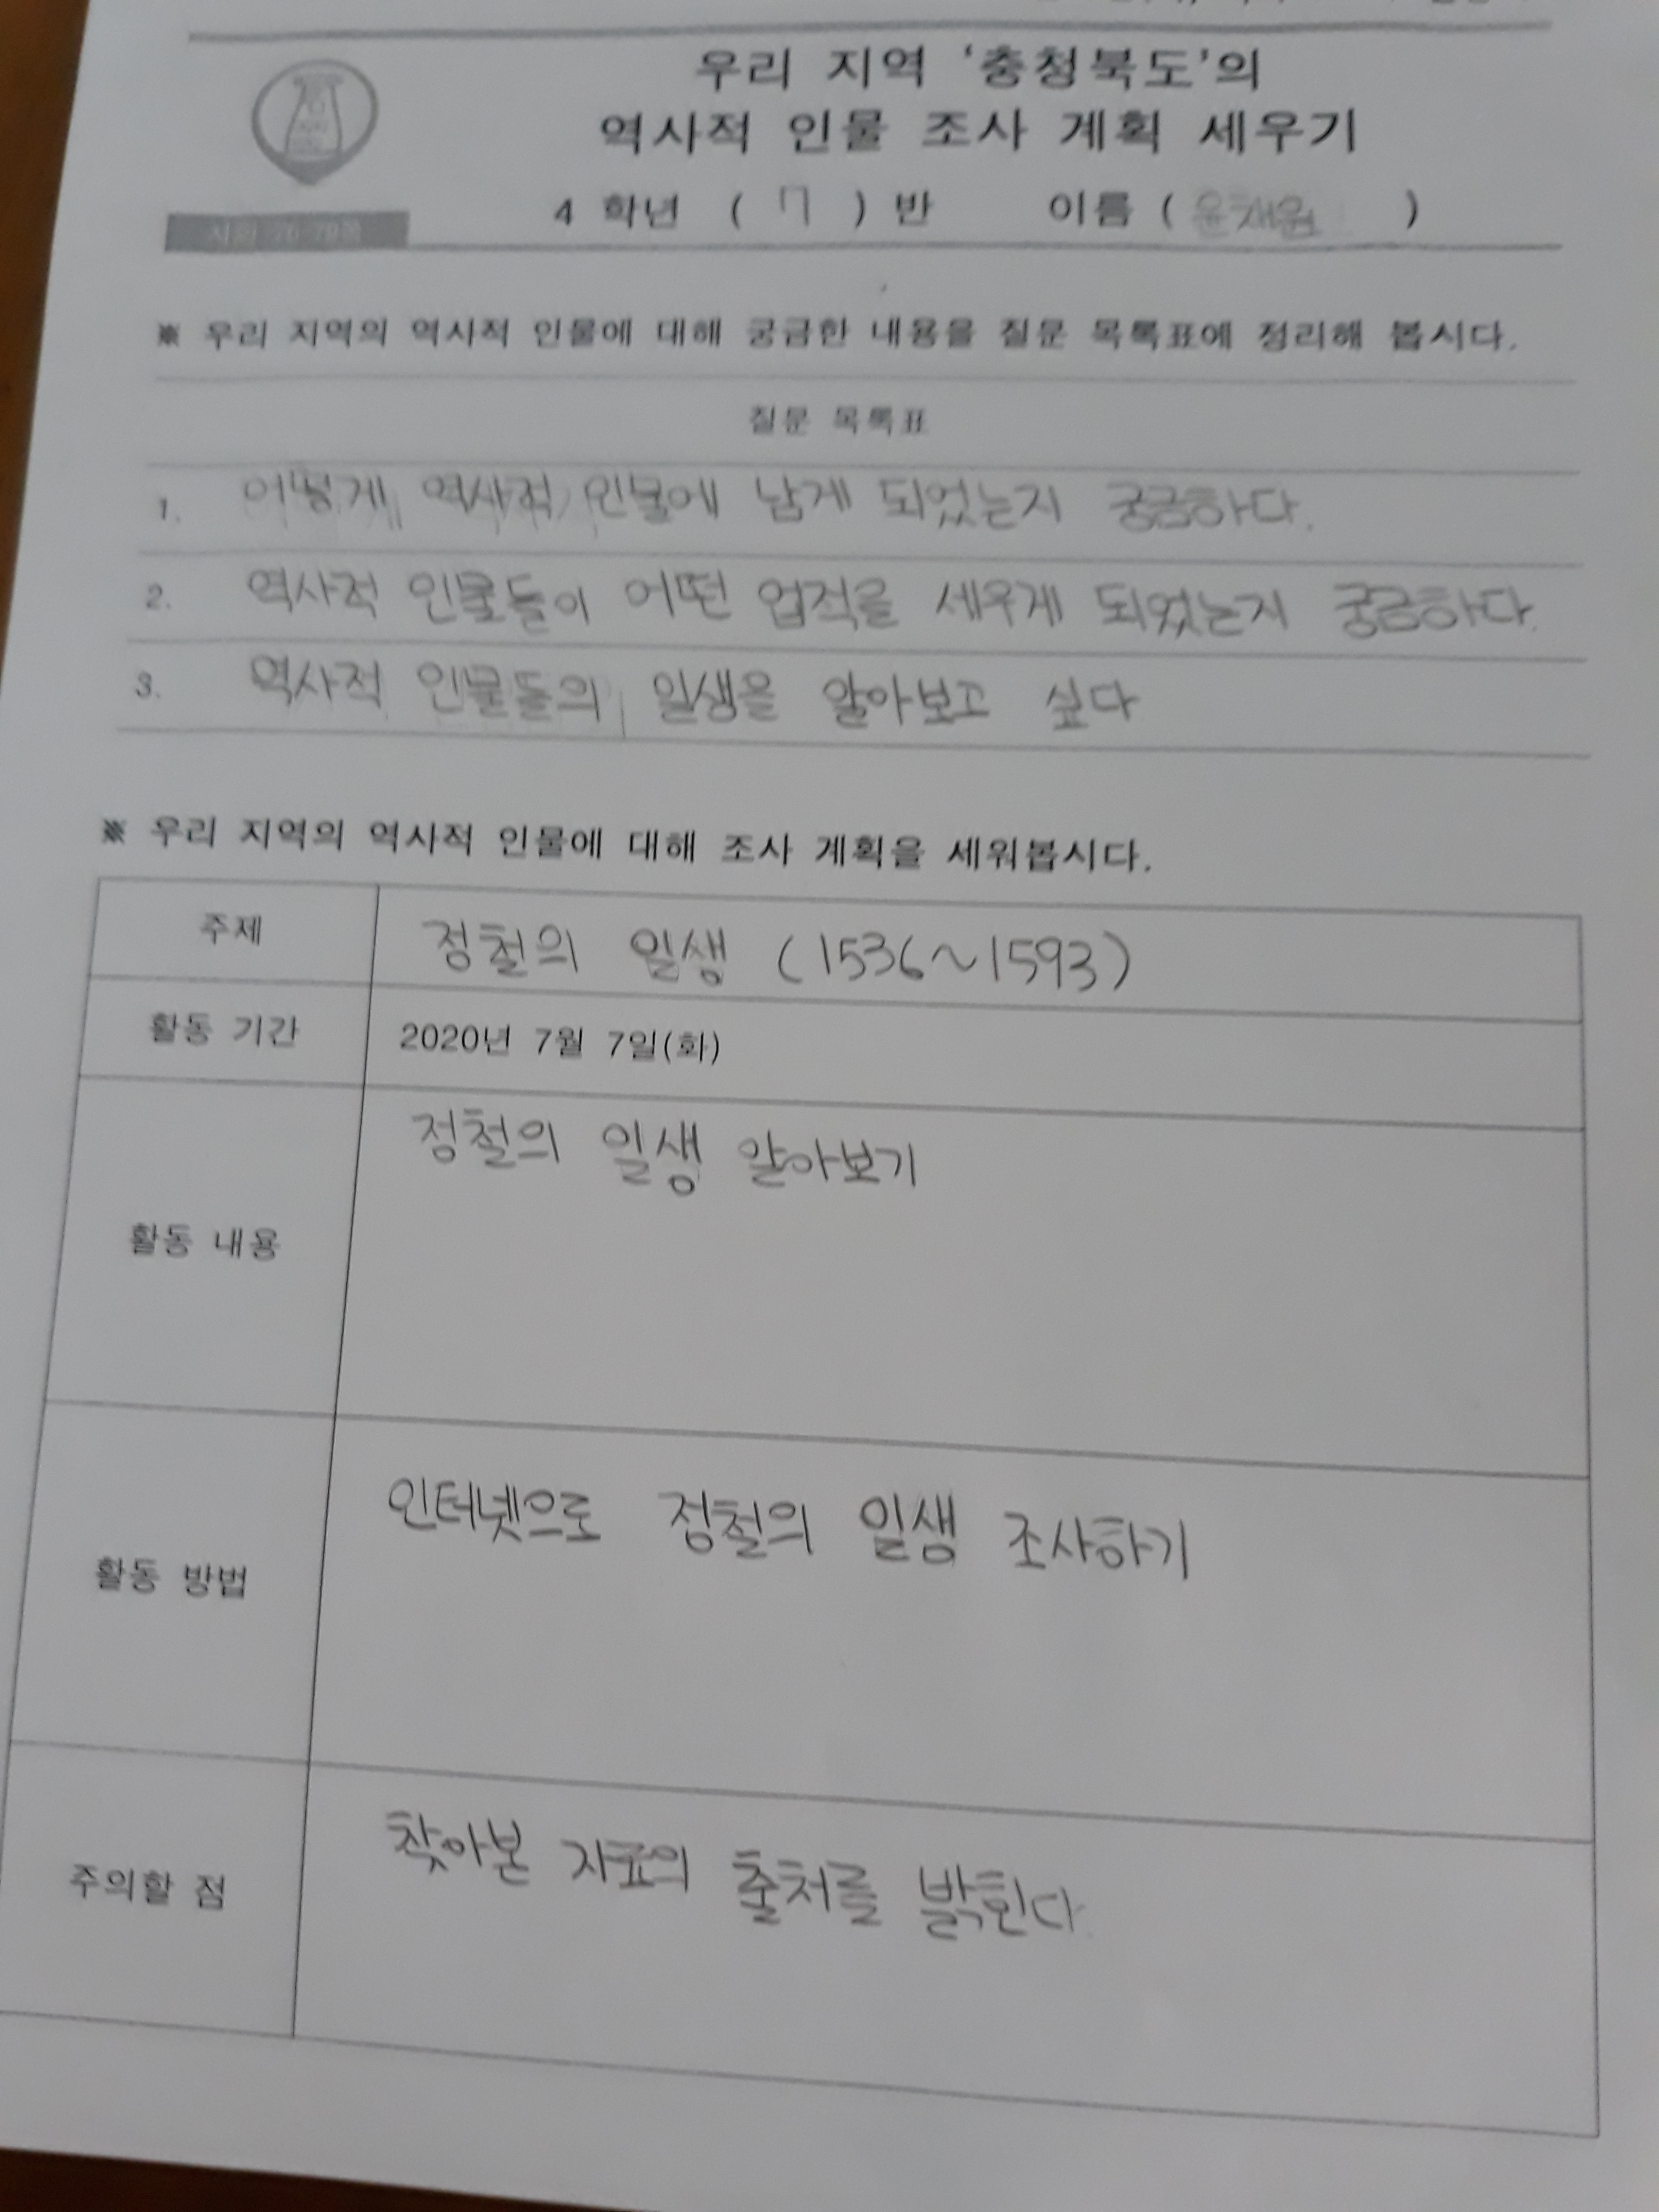 우리 지역 '충청북도'의
역사적 인물 조사 계획 세우기
4 학년 ( 7 ) 반 이름 ( 윤채원 )
※ 우리 지역의 역사적 인물에 대해 궁금한 내용을 질문 목록표에 정리해 봅시다.
질문 목록표
1. 어떻게 역사적 인물에 남게 되었는지 궁금하다.
2. 역사적 인물들이 어떤 업적을 세우게 되었는지 궁금하다.
3. 역사적 인물들의 일생을 알아보고 싶다
※ 우리 지역의 역사적 인물에 대해 조사 계획을 세워봅시다.
주제 정철의 일생 (1536~1593)
활동 기간 2020년 7월 7일(화)
활동 내용 정철의 일생 알아보기
활동 방법 인터넷으로 정철의 일생 조사하기
주의할 점 찾아본 자료의 출처를 밝힌다.